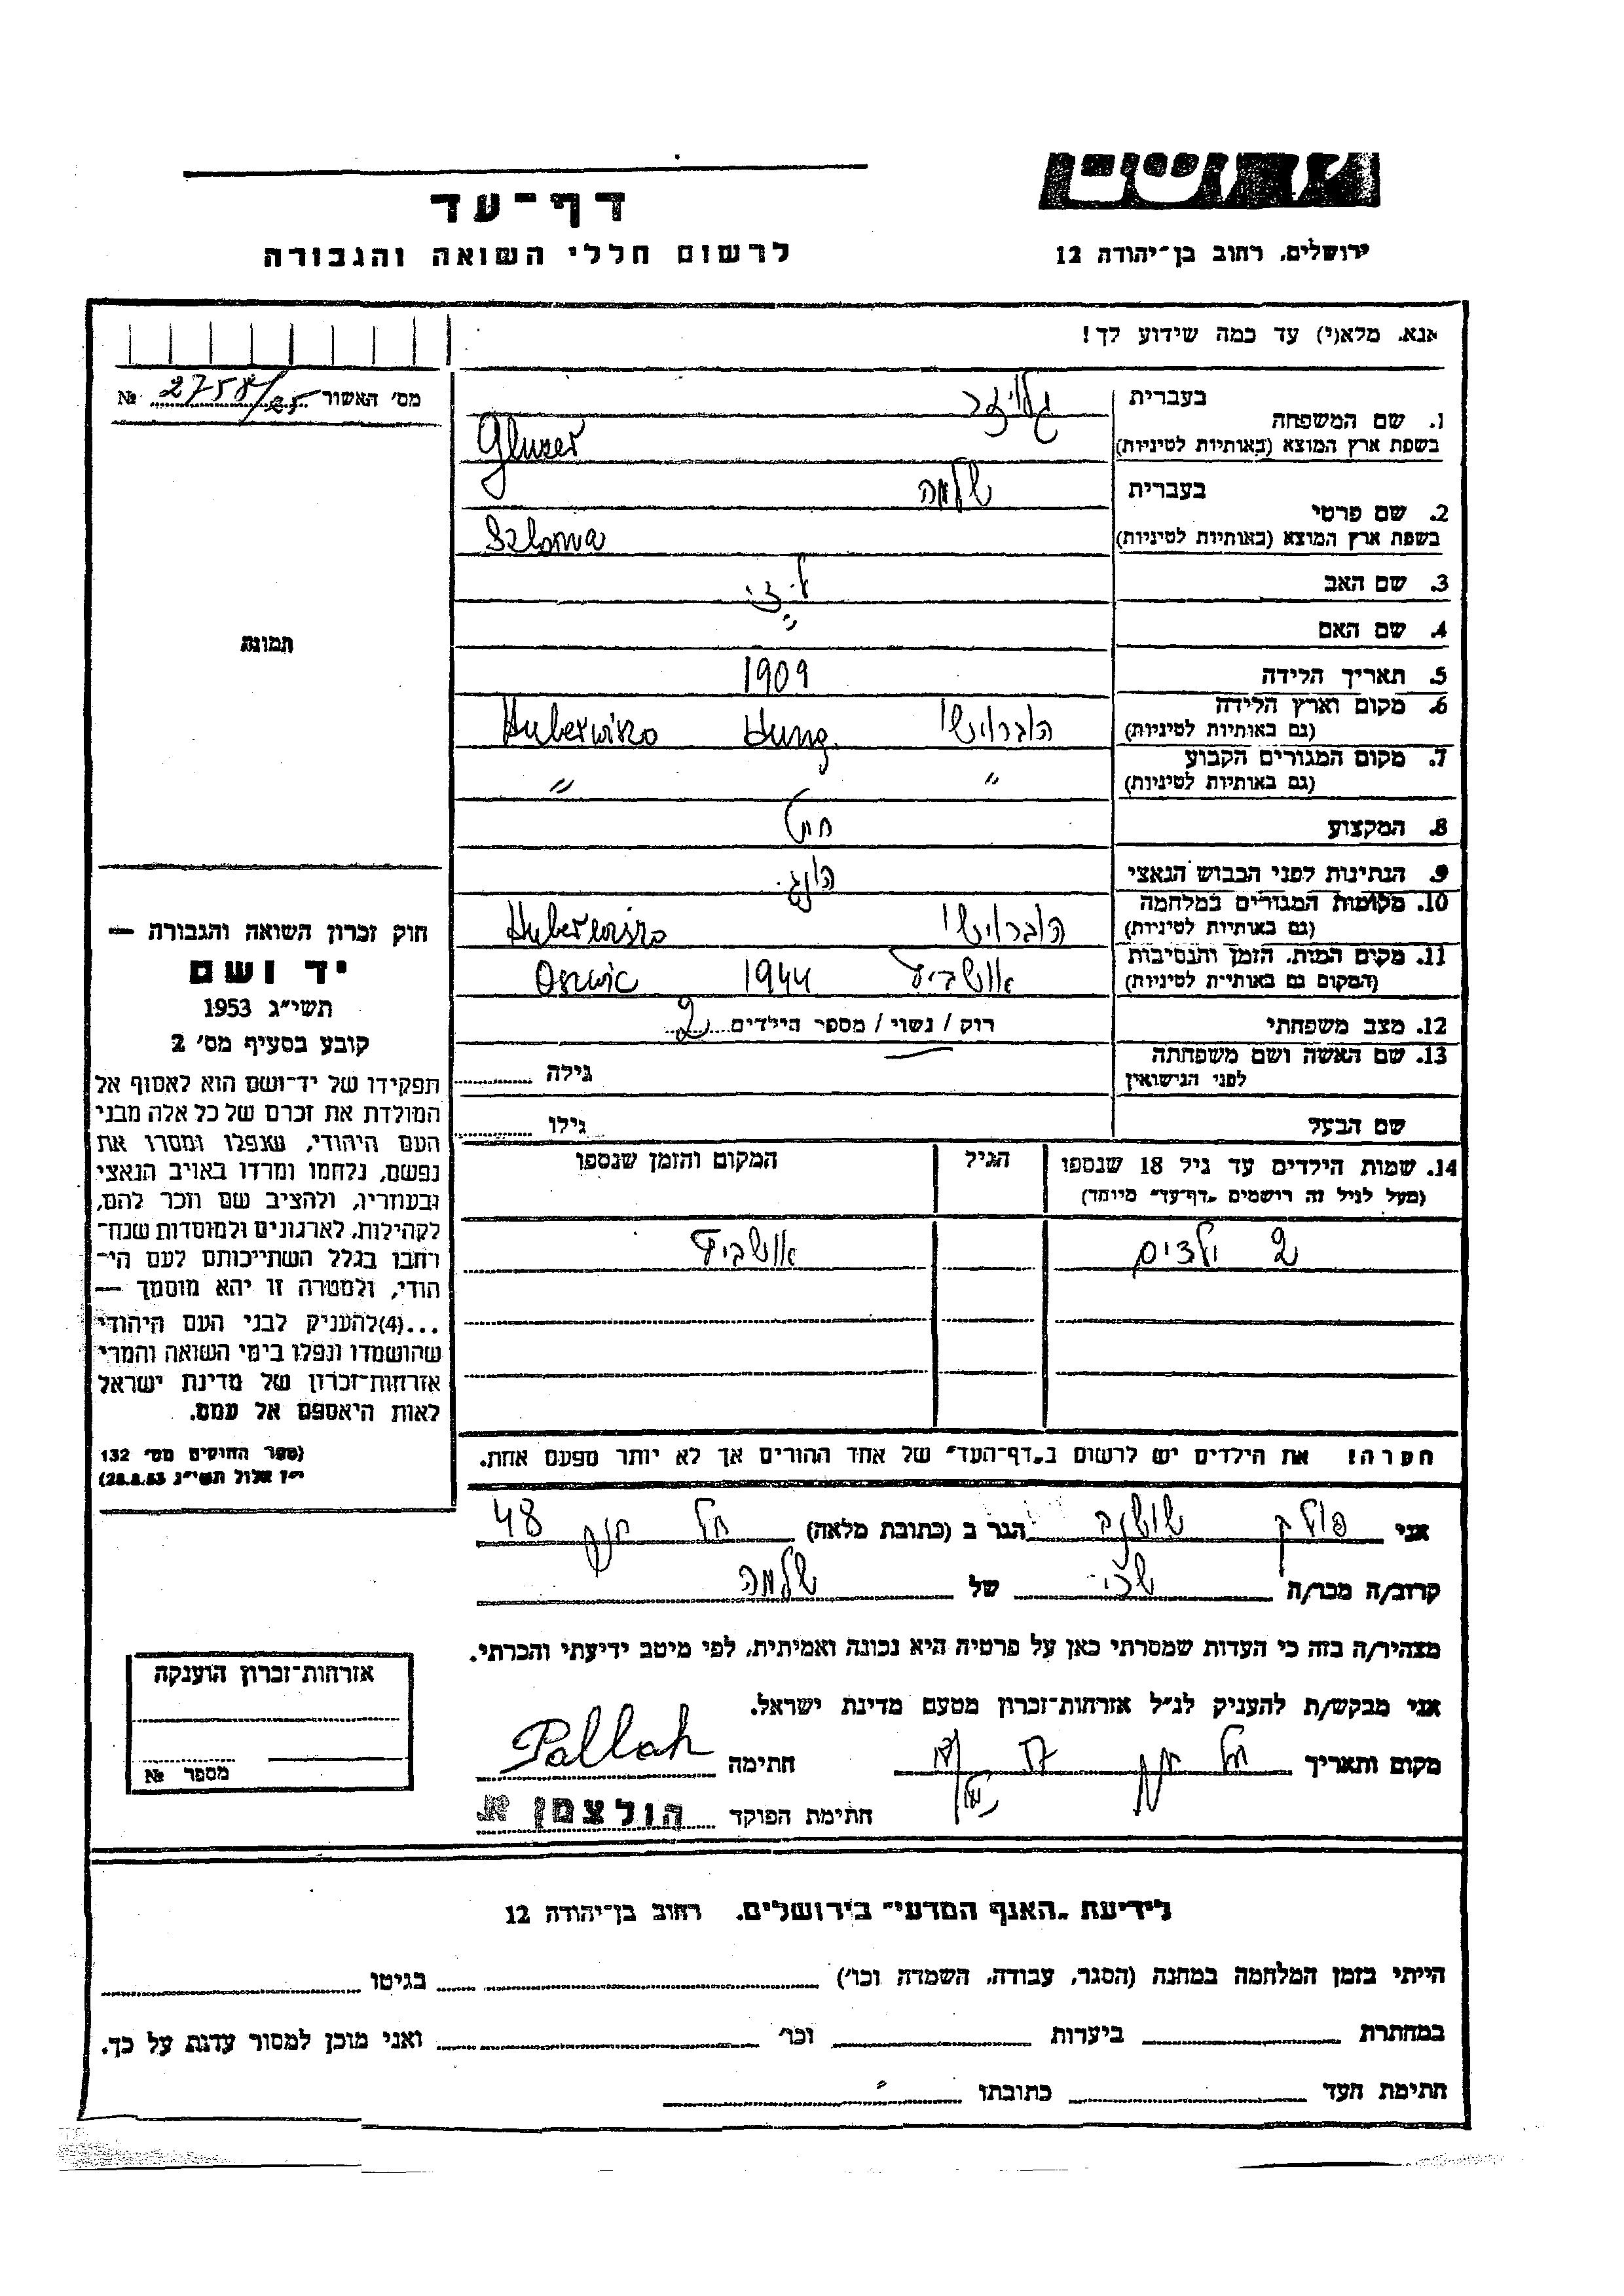 דף־עד
לרשום חללי השואה והגבורה
ירושלים, רחוב בן־יהודה 12
אנא, מלא(י) עד כמה שידוע לך!
מס׳ האשור 2758/25 №
בעברית
1. שם המשפחה
בשפת ארץ המוצא (באותיות לטיניות) Gluzer
בעברית שלמה
2. שם פרטי
בשפת ארץ המוצא (באותיות לטיניות) Szloma
3. שם האב
4. שם האם
5. תאריך הלידה 1909
6. מקום וארץ הלידה
(גם באותיות לטיניות) Hung.
7. מקום המגורים הקבוע
(גם באותיות לטיניות) " "
8. המקצוע
9. הנתינות לפני הכבוש הנאצי הונג.
10. מקומות המגורים במלחמה
(גם באותיות לטיניות)
11. מקום המות, הזמן והנסיבות
(המקום גם באותיות לטיניות) אושביץ 1944
12. מצב משפחתי רוק / נשוי / מספר הילדים 2
13. שם האשה ושם משפחתה
לפני הנישואין גילה
שם הבעל גילו
14. שמות הילדים עד גיל 18 שנספו הגיל המקום והזמן שנספו
(מעל לגיל זה רושמים „דף־עד״ מיוחד)
2 ילדים אושביץ
הערה! את הילדים יש לרשום ב„דף־העד״ של אחד ההורים אך לא יותר מפעם אחת.
תמונה
חוק זכרון השואה והגבורה —
יד ושם
תשי״ג 1953
קובע בסעיף מס׳ 2
תפקידו של יד־ושם הוא לאסוף אל
המולדת את זכרם של כל אלה מבני
העם היהודי, שנפלו ומסרו את
נפשם, נלחמו ומרדו באויב הנאצי
ובעוזריו, ולהציב שם וזכר להם,
לקהילות, לארגונים ולמוסדות שנח־
רחבו בגלל השתייכותם לעם הי־
הודי, ולמטרה זו יהא מוסמך —
...(4)להעניק לבני העם היהודי
שהושמדו ונפלו בימי השואה והמרי
אזרחות־זכרון של מדינת ישראל
לאות היאספם אל עמם.
(ספר החוקים מס׳ 132
י״ז אלול תשי״ג 28.8.53)
אני פולק שושנה הגר ב (כתובת מלאה) 48
קרוב/ה מכר/ה שכן של שלמה
מצהיר/ה בזה כי העדות שמסרתי כאן על פרטיה היא נכונה ואמיתית, לפי מיטב ידיעתי והכרתי.
אני מבקש/ת להעניק לנ״ל אזרחות־זכרון מטעם מדינת ישראל.
מקום ותאריך חתימה Pallah
חתימת הפוקד הולצמן א.
אזרחות־זכרון הוענקה
מספר №
לידיעת „האגף המדעי״ בירושלים, רחוב בן־יהודה 12
הייתי בזמן המלחמה במחנה (הסגר, עבודה, השמדה וכו׳) בגיטו
במחתרת ביערות וכו׳ ואני מוכן למסור עדות על כך.
חתימת העד כתובתו